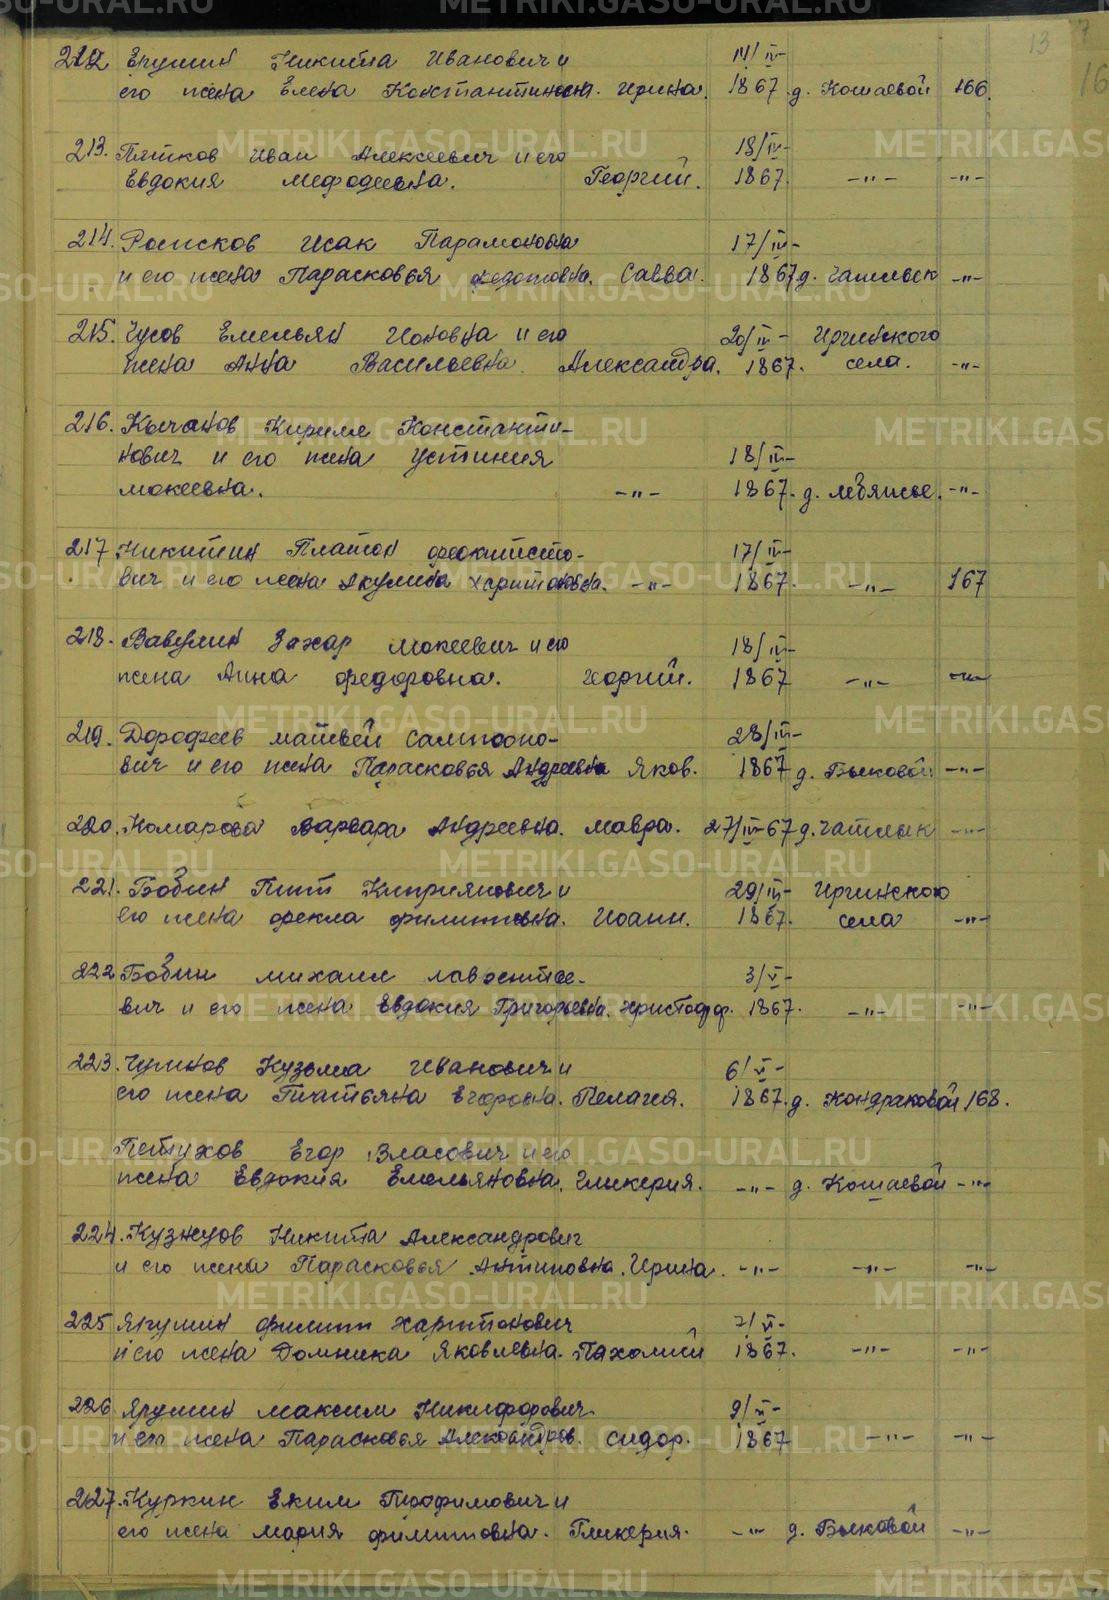 13 7
16
212 Ярушин Никита Иванович и 14/IV-
его жена Елена Константиновна. Ирина. 1867 д. Кошаевой 166.
213. Пятков Иван Алексеевич и его 18/IV-
Евдокия Мефодеевна. Георгий. 1867. -"- -"-
214. Исак Парамоновна 17/IV-
и его жена Парасковья Федотовна. Савва. 1867 д. Чатлык -"-
215. Чусов Емельян Ионовна и его 20/IV- Иргинского
жена Анна Васильевна. Александра. 1867. села. -"-
216. Кычанов Кирилл Константи-
нович и его жена Устиния 18/IV-
Мокеевна. -"- 1867. д. Лебяжье. -"-
217 Никитин Платон Феоктисто- 17/IV-
вич и его жена Акулина Харитоновна. -"- 1867. -"- 167
218. Вавулин Захар Мокеевич и его 18/IV-
жена Анна Федоровна. Георгий. 1867 -"- -"-
219. Дорофеев Матвей Сампсоно- 28/IV-
вич и его жена Парасковья Андреевна Яков. 1867 д. Быковой -"-
220. Комарова Варвара Андреевна. Мавра. 27/IV-67 д. Чатлык -"-
221. Бобин Тит Киприянович и 29/IV- Иргинского
его жена Фекла Филипповна. Иоанн. 1867. села -"-
222 Бобин Михаил Лаврентье- 3/V-
вич и его жена Евдокия Григорьевна. Христофор. 1867. -"- -"-
223. Кузьма Иванович и 6/V-
его жена Татьяна Егоровна. Пелагия. 1867. д. Кондраковой 168.
Петухов Егор Власович и его
жена Евдокия Емельяновна. Гликерия. -"- д. Кошаевой -"-
224. Кузнецов Никита Александрович
и его жена Парасковья Антиповна. Ирина. -"- -"- -"-
225 Ярушин Филипп Харитонович 7/V-
и его жена Домника Яковлевна. Пахомий 1867. -"- -"-
226 Ярушин Максим Никифорович 9/V-
и его жена Парасковья Александров. Сидор. 1867 -"- -"-
227. Куркин Еким Трофимович и
его жена Мария Филипповна. Гликерия. -"- д. Быковой -"-
METRIKI.GASO-URAL.RU